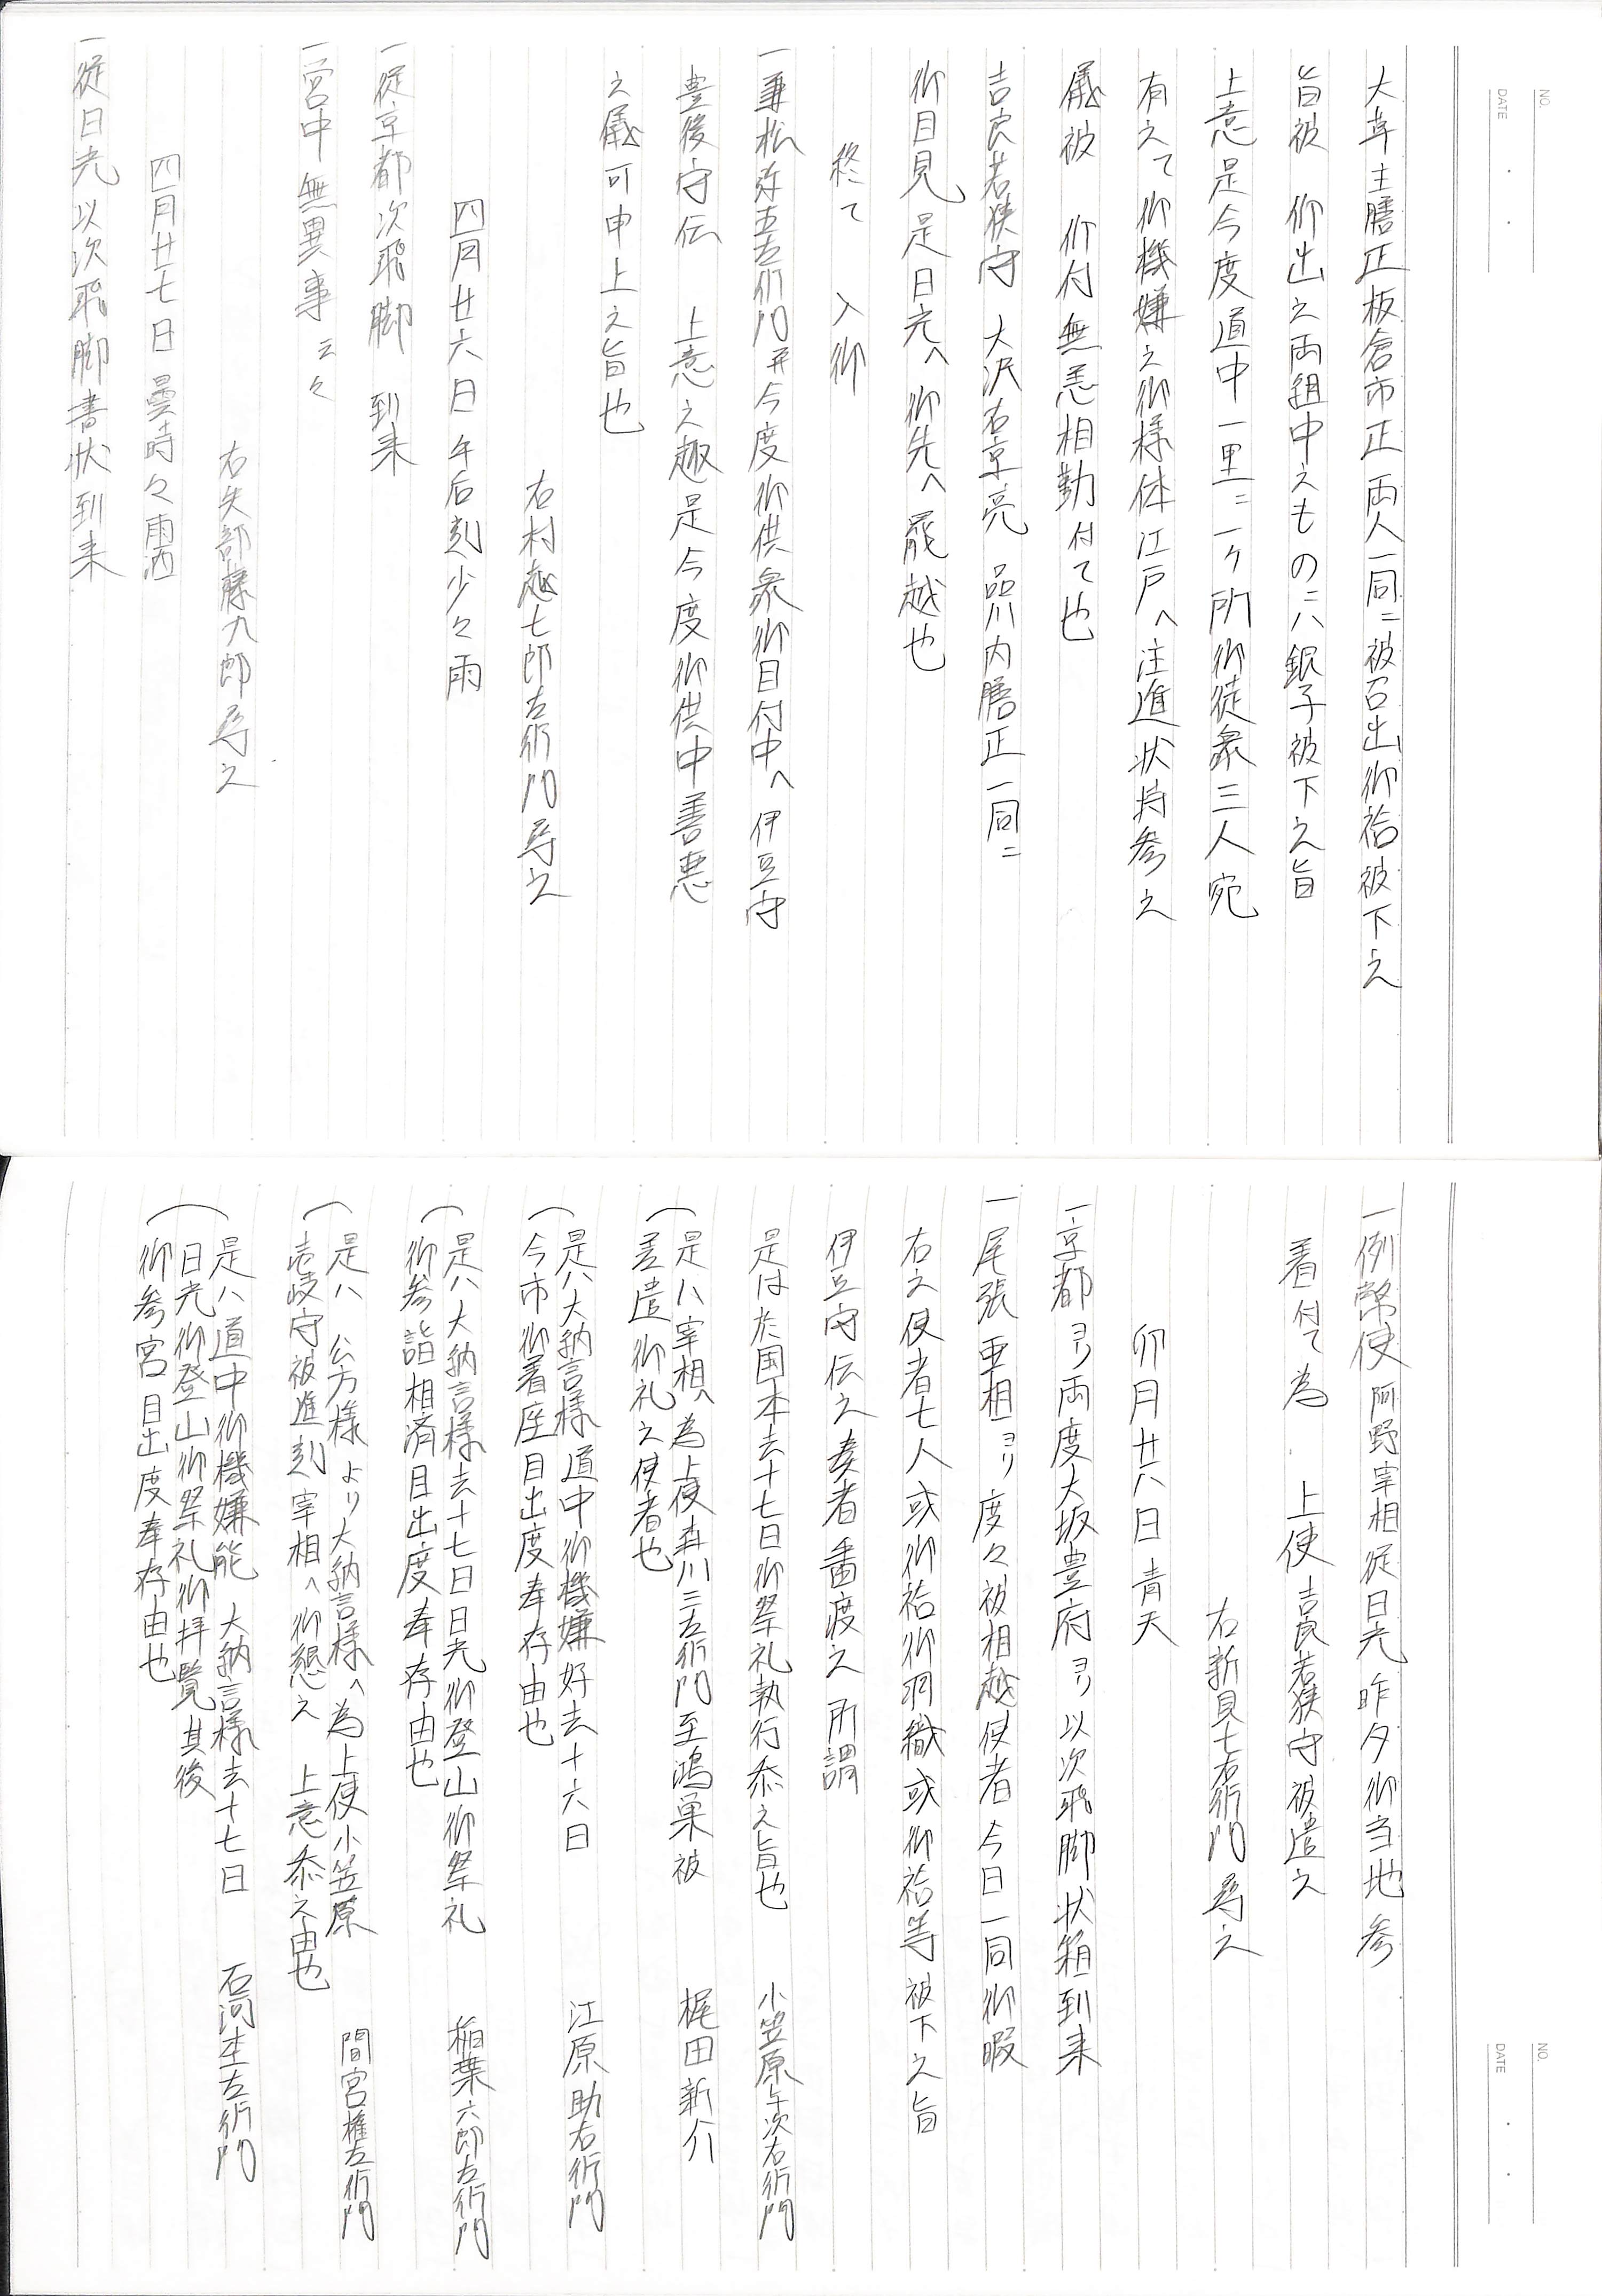 NO.
DATE
大草主膳正板倉市正両人一同ニ被召出御袷被下之
旨被 仰出之両組中之ものニハ銀子被下之旨
上意是今度道中一里ニ一ケ所御徒衆三人宛
有之て御機嫌之御様体江戸へ注進状持参之
儀被 仰付無恙相勤付て也
吉良若狭守 大沢右京亮 品川内膳正一同ニ
御目見是日光へ御先へ罷越也
終て 入御
一兼松弥五左衛門并今度御供衆御目付中へ伊豆守
豊後守伝 上意之趣是今度御供中善悪
之儀可申上之旨也
右村越七郎左衛門尋之
四月廿六日 午后刻少々雨
一従京都次飛脚 到来
一宮中無異事 云々
右矢部藤九郎尋之
四月廿七日 曇時々雨洒
一従日光以次飛脚書状到来
NO.
DATE
一例幣使 阿野宰相従日光昨夕御当地 参
着付て為 上使 吉良若狭守被遣之
右新見七右衛門尋之
卯月廿八日 青天
一京都ヨリ両度大坂豊府ヨリ以次飛脚状箱到来
一尾張亜相ヨリ度々被相越使者今日一同御暇
右之使者七人或御袷御羽織或御袷等被下之旨
伊豆守伝之奏者番渡之所謂
是は於国本去十七日御祭礼執行忝之旨也 小笠原午次右衛門
是ハ宰相へ為上使森川三左衛門至鴻巣被
差遣御礼之使者也 梶田新介
是ハ大納言様道中御機嫌好去十六日
今市御着座目出度奉存由也 江原助右衛門
是ハ大納言様去十七日日光御登山御祭礼
御参詣相済目出度奉存由也 稲葉六郎左衛門
是ハ 公方様より大納言様へ為上使小笠原
壱岐守被進刻宰相へ御懇之 上意忝之由也 間宮権左衛門
是ハ道中御機嫌能 大納言様去十七日
日光御登山御祭礼御拝覧其後
御参宮目出度奉存由也 石河杢左衛門